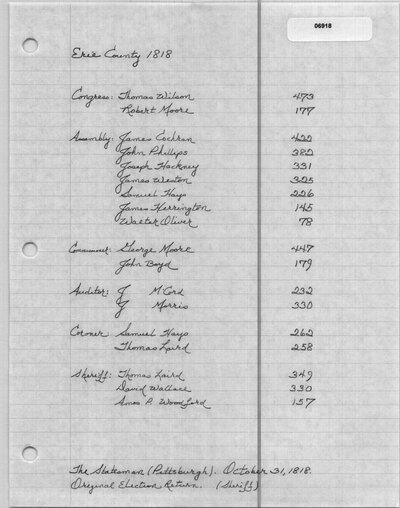 06918
Erie County 1818
Congress: Thomas Wilson 473
Robert Moore 177
Assembly: James Cochran 422
John Phillips 382
Joseph Hackney 331
James Weston 325
Samuel Hays 226
James Herrington 145
Walter Oliver 78
Commissioner: George Moore 447
John Boyd 179
Auditor: J McCord 232
J Morris 330
Coroner Samuel Hays 262
Thomas Laird 258
Sheriff: Thomas Laird 349
David Wallace 330
Amos P. Woodford 157
The Statesman (Pittsburgh). October 31, 1818.
Original Election Return. (Sheriff)